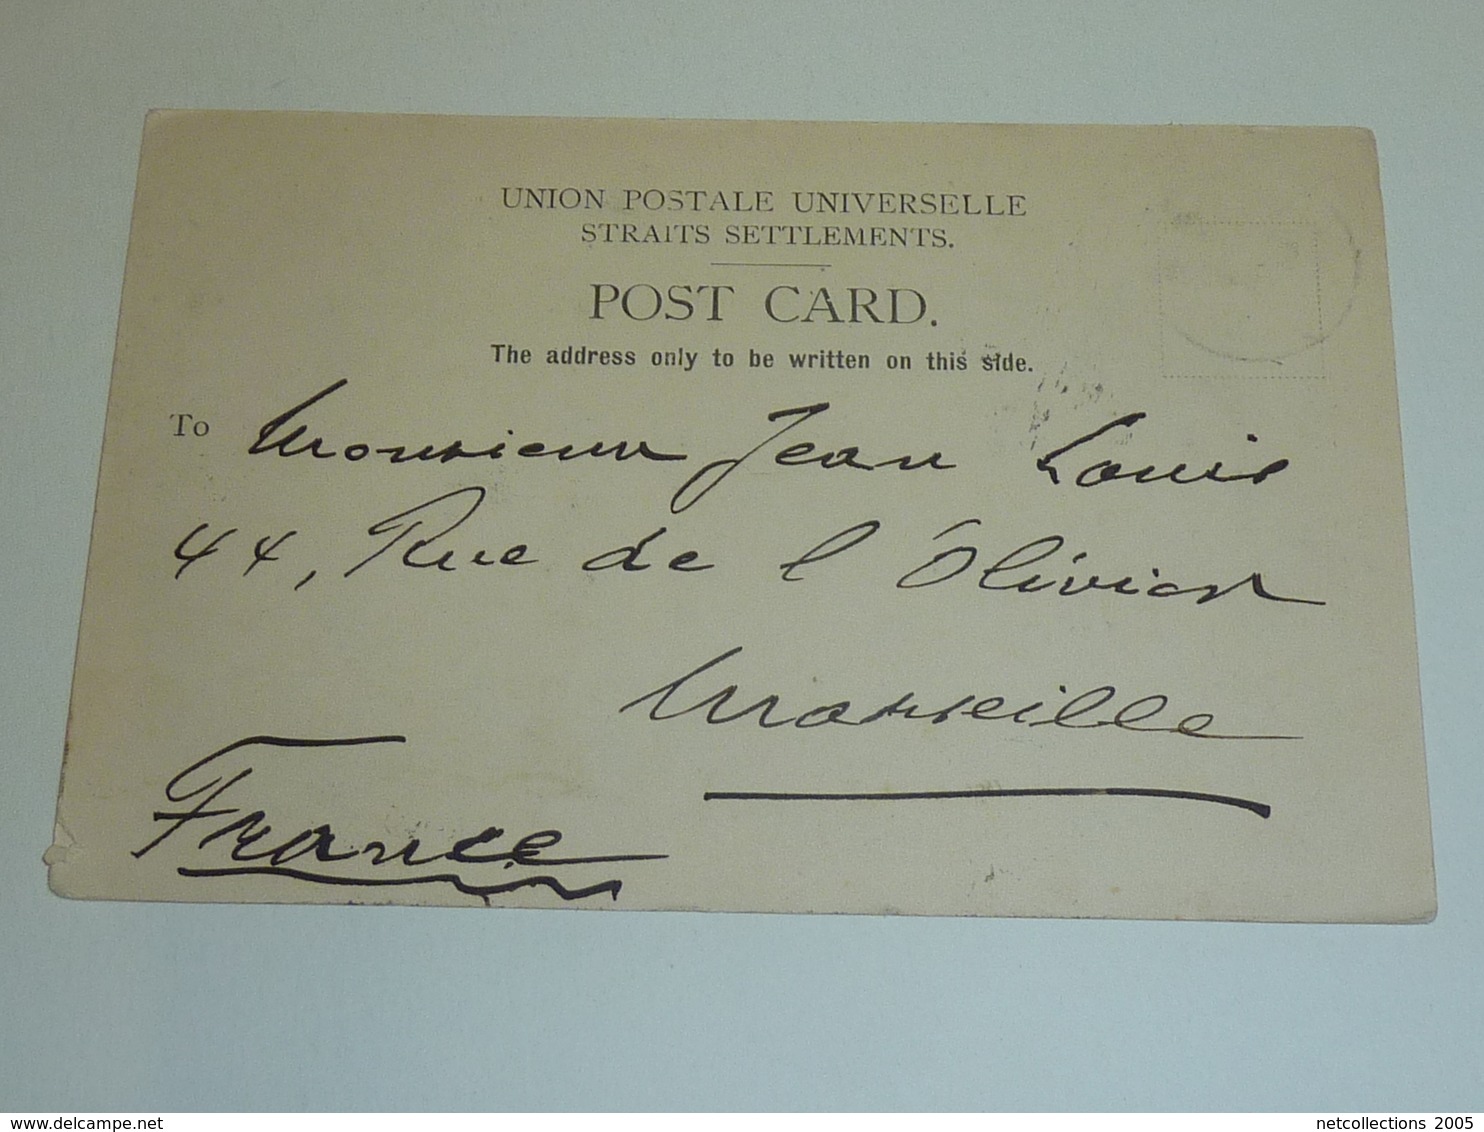 UNION POSTALE UNIVERSELLE
STRAITS SETTLEMENTS.
POST CARD.
The address only to be written on this side.
To Monsieur Jean Louis
44, Rue de l'Olivier
Marseille
France
www.delcampe.net
netcollections 2005